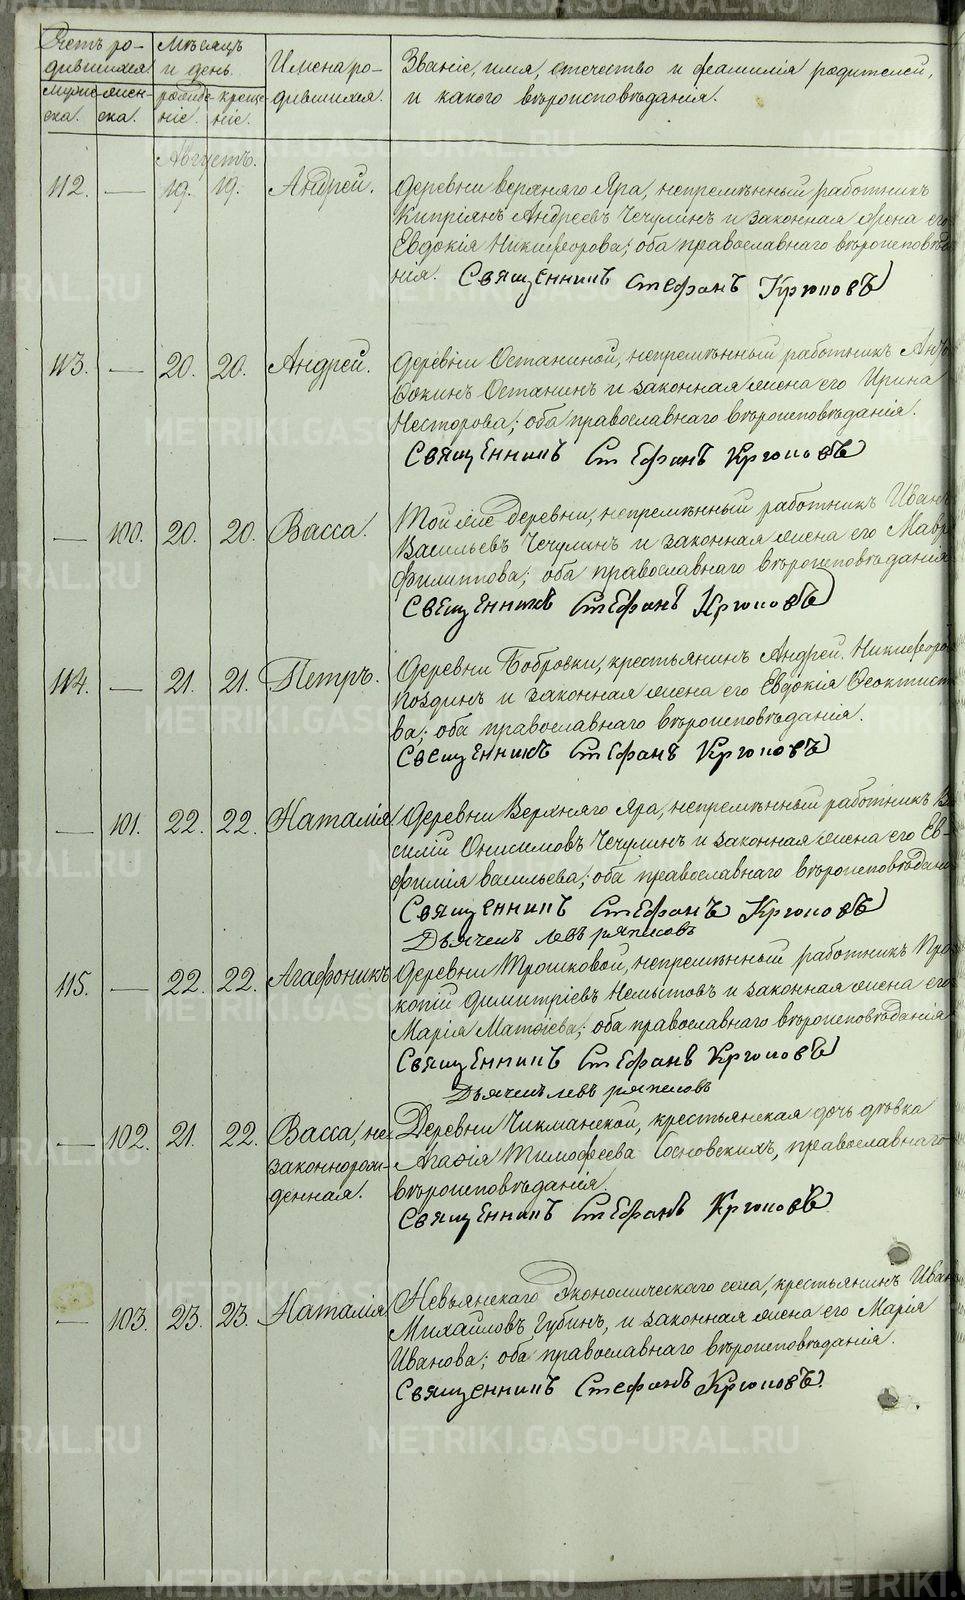 Счетъ ро-
дившихся.
Мѣсяцъ
и день.
Имена ро-
дившихся.
Званіе, имя, отечество и фамилія родителей,
и какого вѣроисповѣданія.
муже-
ска.
жен-
ска.
рожде-
ніе.
креще-
ніе.
Августъ.
112. — 19. 19. Андрей. Деревни Верхняго Яра, непремѣнный работникъ
Кипріянъ Андреевъ Чечулинъ и законная жена его
Евдокія Никифорова; оба православнаго вѣроисповѣда-
нія. Священникъ Стефанъ Крюковъ
113. — 20. 20. Андрей. Деревни Останиной, непремѣнный работникъ
Останинъ и законная жена его Ирина
Несторова; оба православнаго вѣроисповѣданія.
Священникъ Стефанъ Крюковъ
— 100. 20. 20. Васса. Той же деревни, непремѣнный работникъ Иванъ
Васильевъ Чечулинъ и законная жена его Мавра
Филиппова; оба православнаго вѣроисповѣданія
Священникъ Стефанъ Крюковъ
114. — 21. 21. Петръ. Деревни Бобровки, крестьянинъ Андрей Никифоров
Поздинъ и законная жена его Евдокія Ѳеоктисто-
ва; оба православнаго вѣроисповѣданія.
Священникъ Стефанъ Крюковъ
— 101. 22. 22. Наталія. Деревни Верхняго Яра, непремѣнный работникъ Ва-
силій Онисимовъ Чечулинъ и законная жена его Ев-
фимія Васильева; оба православнаго вѣроисповѣдані
Священникъ Стефанъ Крюковъ
Дьячекъ Левъ Ряписовъ
115. — 22. 22. Агафоникъ Деревни Трошковой, непремѣнный работникъ Про-
копій Димитріевъ Немытовъ и законная жена его
Марія Матѳіева; оба православнаго вѣроисповѣданія
Священникъ Стефанъ Крюковъ
Дьячекъ Левъ Ряписовъ
— 102. 21. 22. Васса, не-
законнорож-
денная.
Деревни Чикманской, крестьянская дочь дѣвка
Агаѳія Тимофеева Сосновскихъ, православнаго
вѣроисповѣданія.
Священникъ Стефанъ Крюковъ
— 103. 23. 23. Наталія Невьянскаго Экономическаго села, крестьянинъ Иван
Михайловъ Губинъ, и законная жена его Марія
Иванова; оба православнаго вѣроисповѣданія.
Священникъ Стефанъ Крюковъ.
METRIKI.GASO-URAL.RU